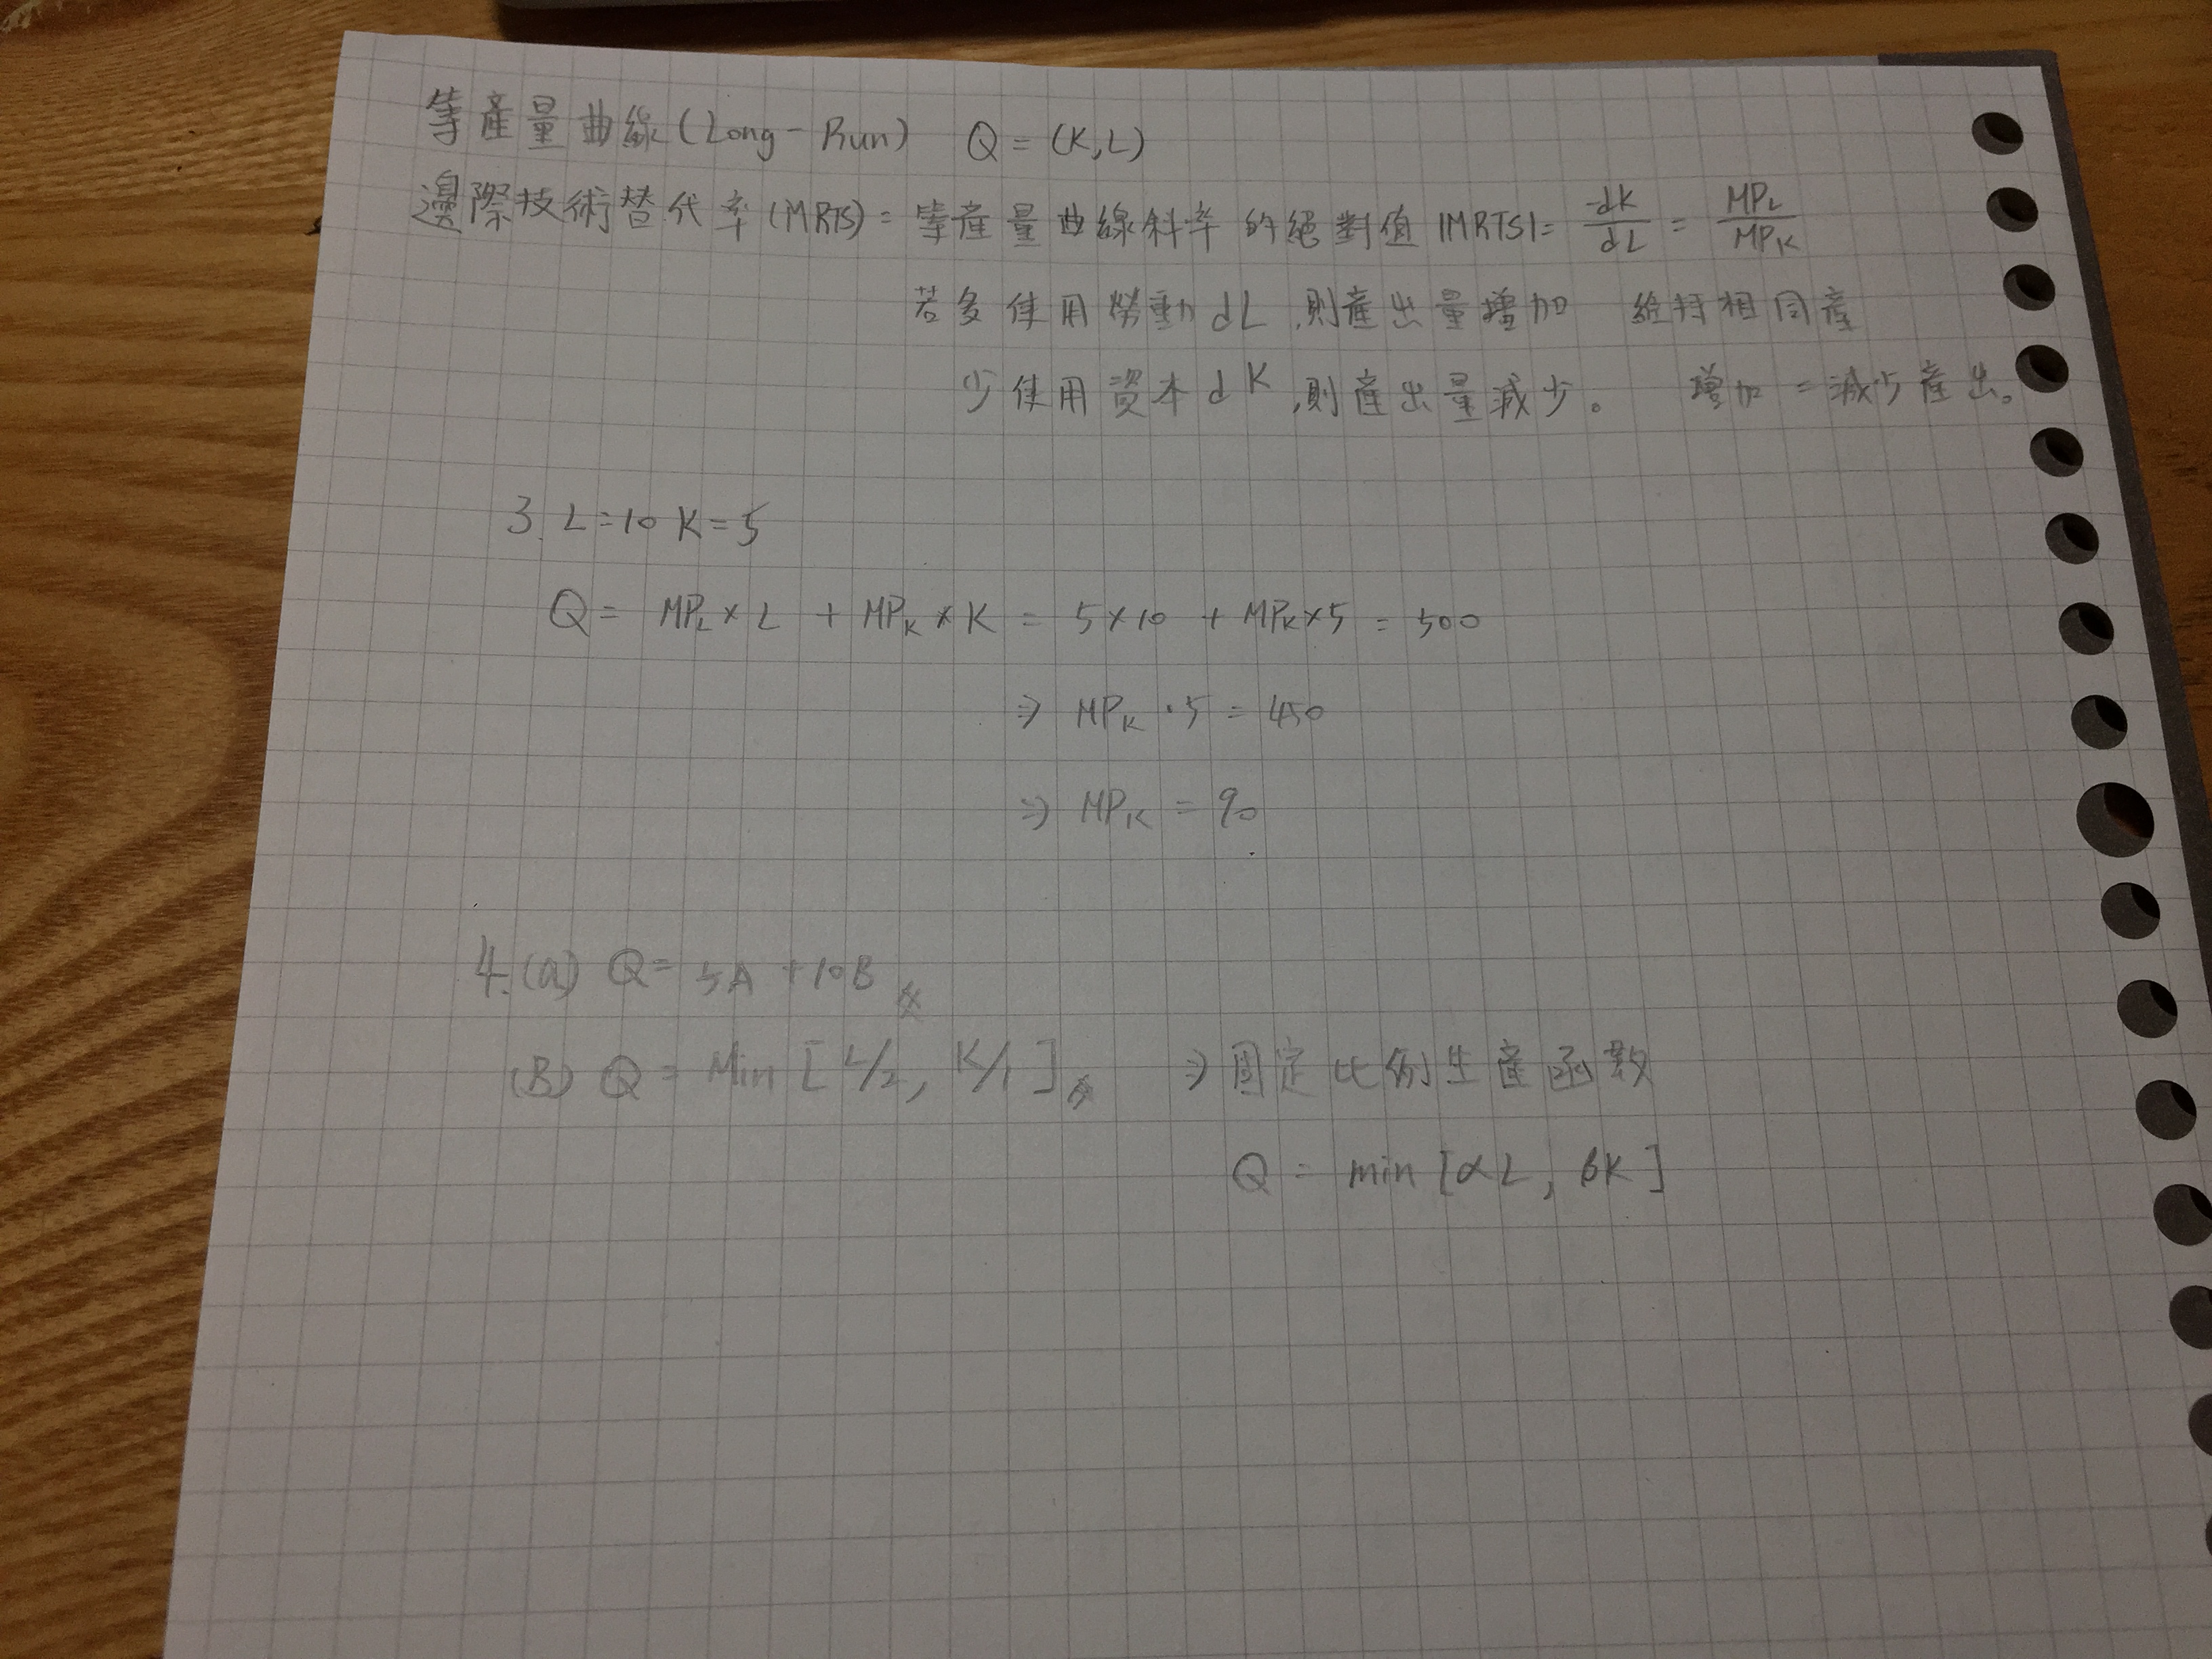 等產量曲線(Long-Run) Q=(K,L)
邊際技術替代率(MRTS)=等產量曲線斜率的絕對值|MRTS|= -dK/dL = MPL/MPK
若多使用勞動dL,則產出量增加 維持相同產
少使用資本dK,則產出量減少。 增加=減少產出。
3. L=10 K=5
Q= MPL×L + MPK×K = 5×10 + MPK×5 = 500
⇒ MPK·5=450
⇒ MPK=90
4.(a) Q=5A+10B
(B) Q=Min[L/2, K/1] ⇒固定比例生產函數
Q=min[αL, βK]